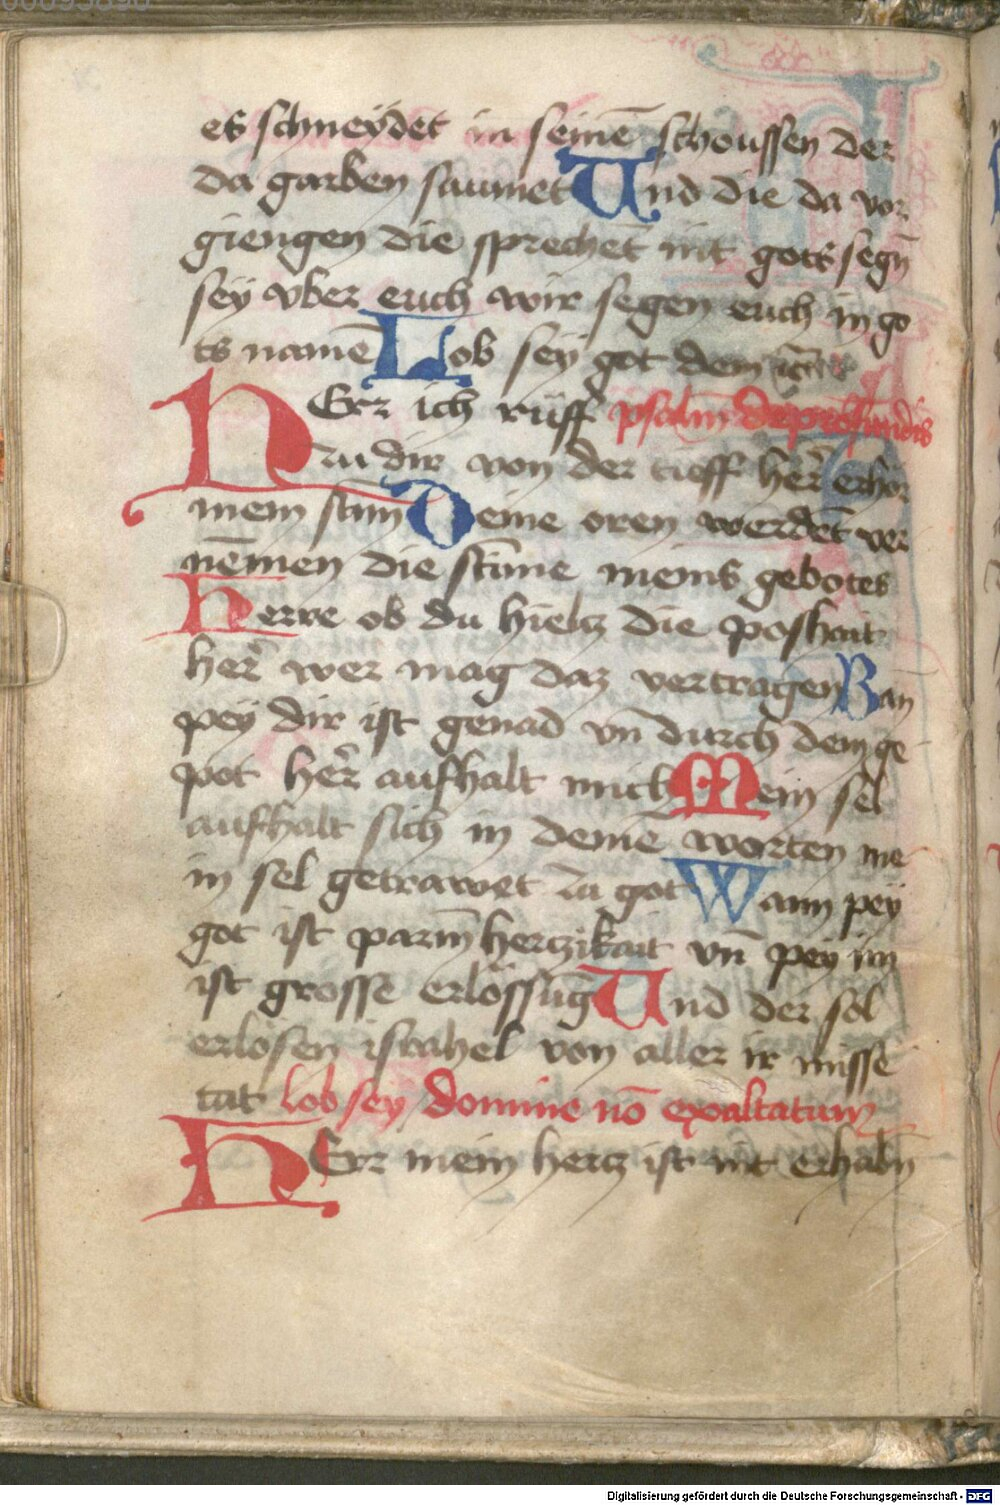 00093890
es schneydet in seinē schoussen der
da garben saumet Und die da vor
giengen die sprechēt nit gots segn̄
sey vber euch wir segen euch in go
ts namē Lob sey got dem
HErr ich rüff psalm de profundis
zu dir von der tieff her̄ erhör
mein stim̄ Deine oren werdēt ver
nēmen die stīme meins gebotes
Herre ob du hieltz die poshait
her̄ wer mag daz vertragen Wan̄
pey dir ist genad vn̄ durch dein ge
pot her̄ aufhalt mich Mein sel
aufhalt sich in deinē worten me
in sel getrawet zu got Wann pey
got ist parm̄hertzikait vn̄ pey im
ist grosse erlössūg Und der sol
erlösen israhel von aller ir misse
tat lob sey domine nō exaltatum
HErr mein hertz ist nit erhabn̄
Digitalisierung gefördert durch die Deutsche Forschungsgemeinschaft - DFG